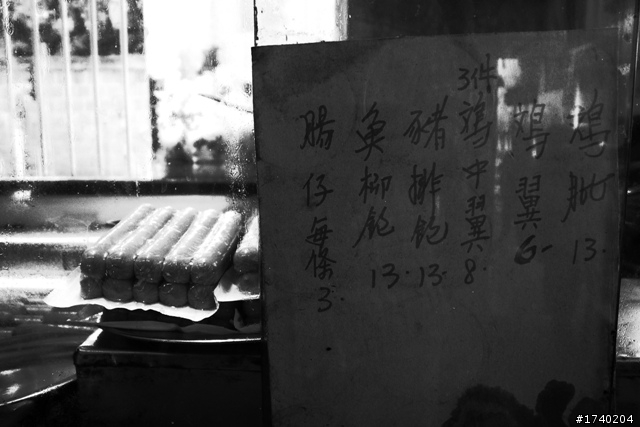 鸡肶 13.
鸡翼 6-
3件鸡中翼 8.
豬排飽 13.
魚柳飽 13.
腸仔每條 3.
#1740204